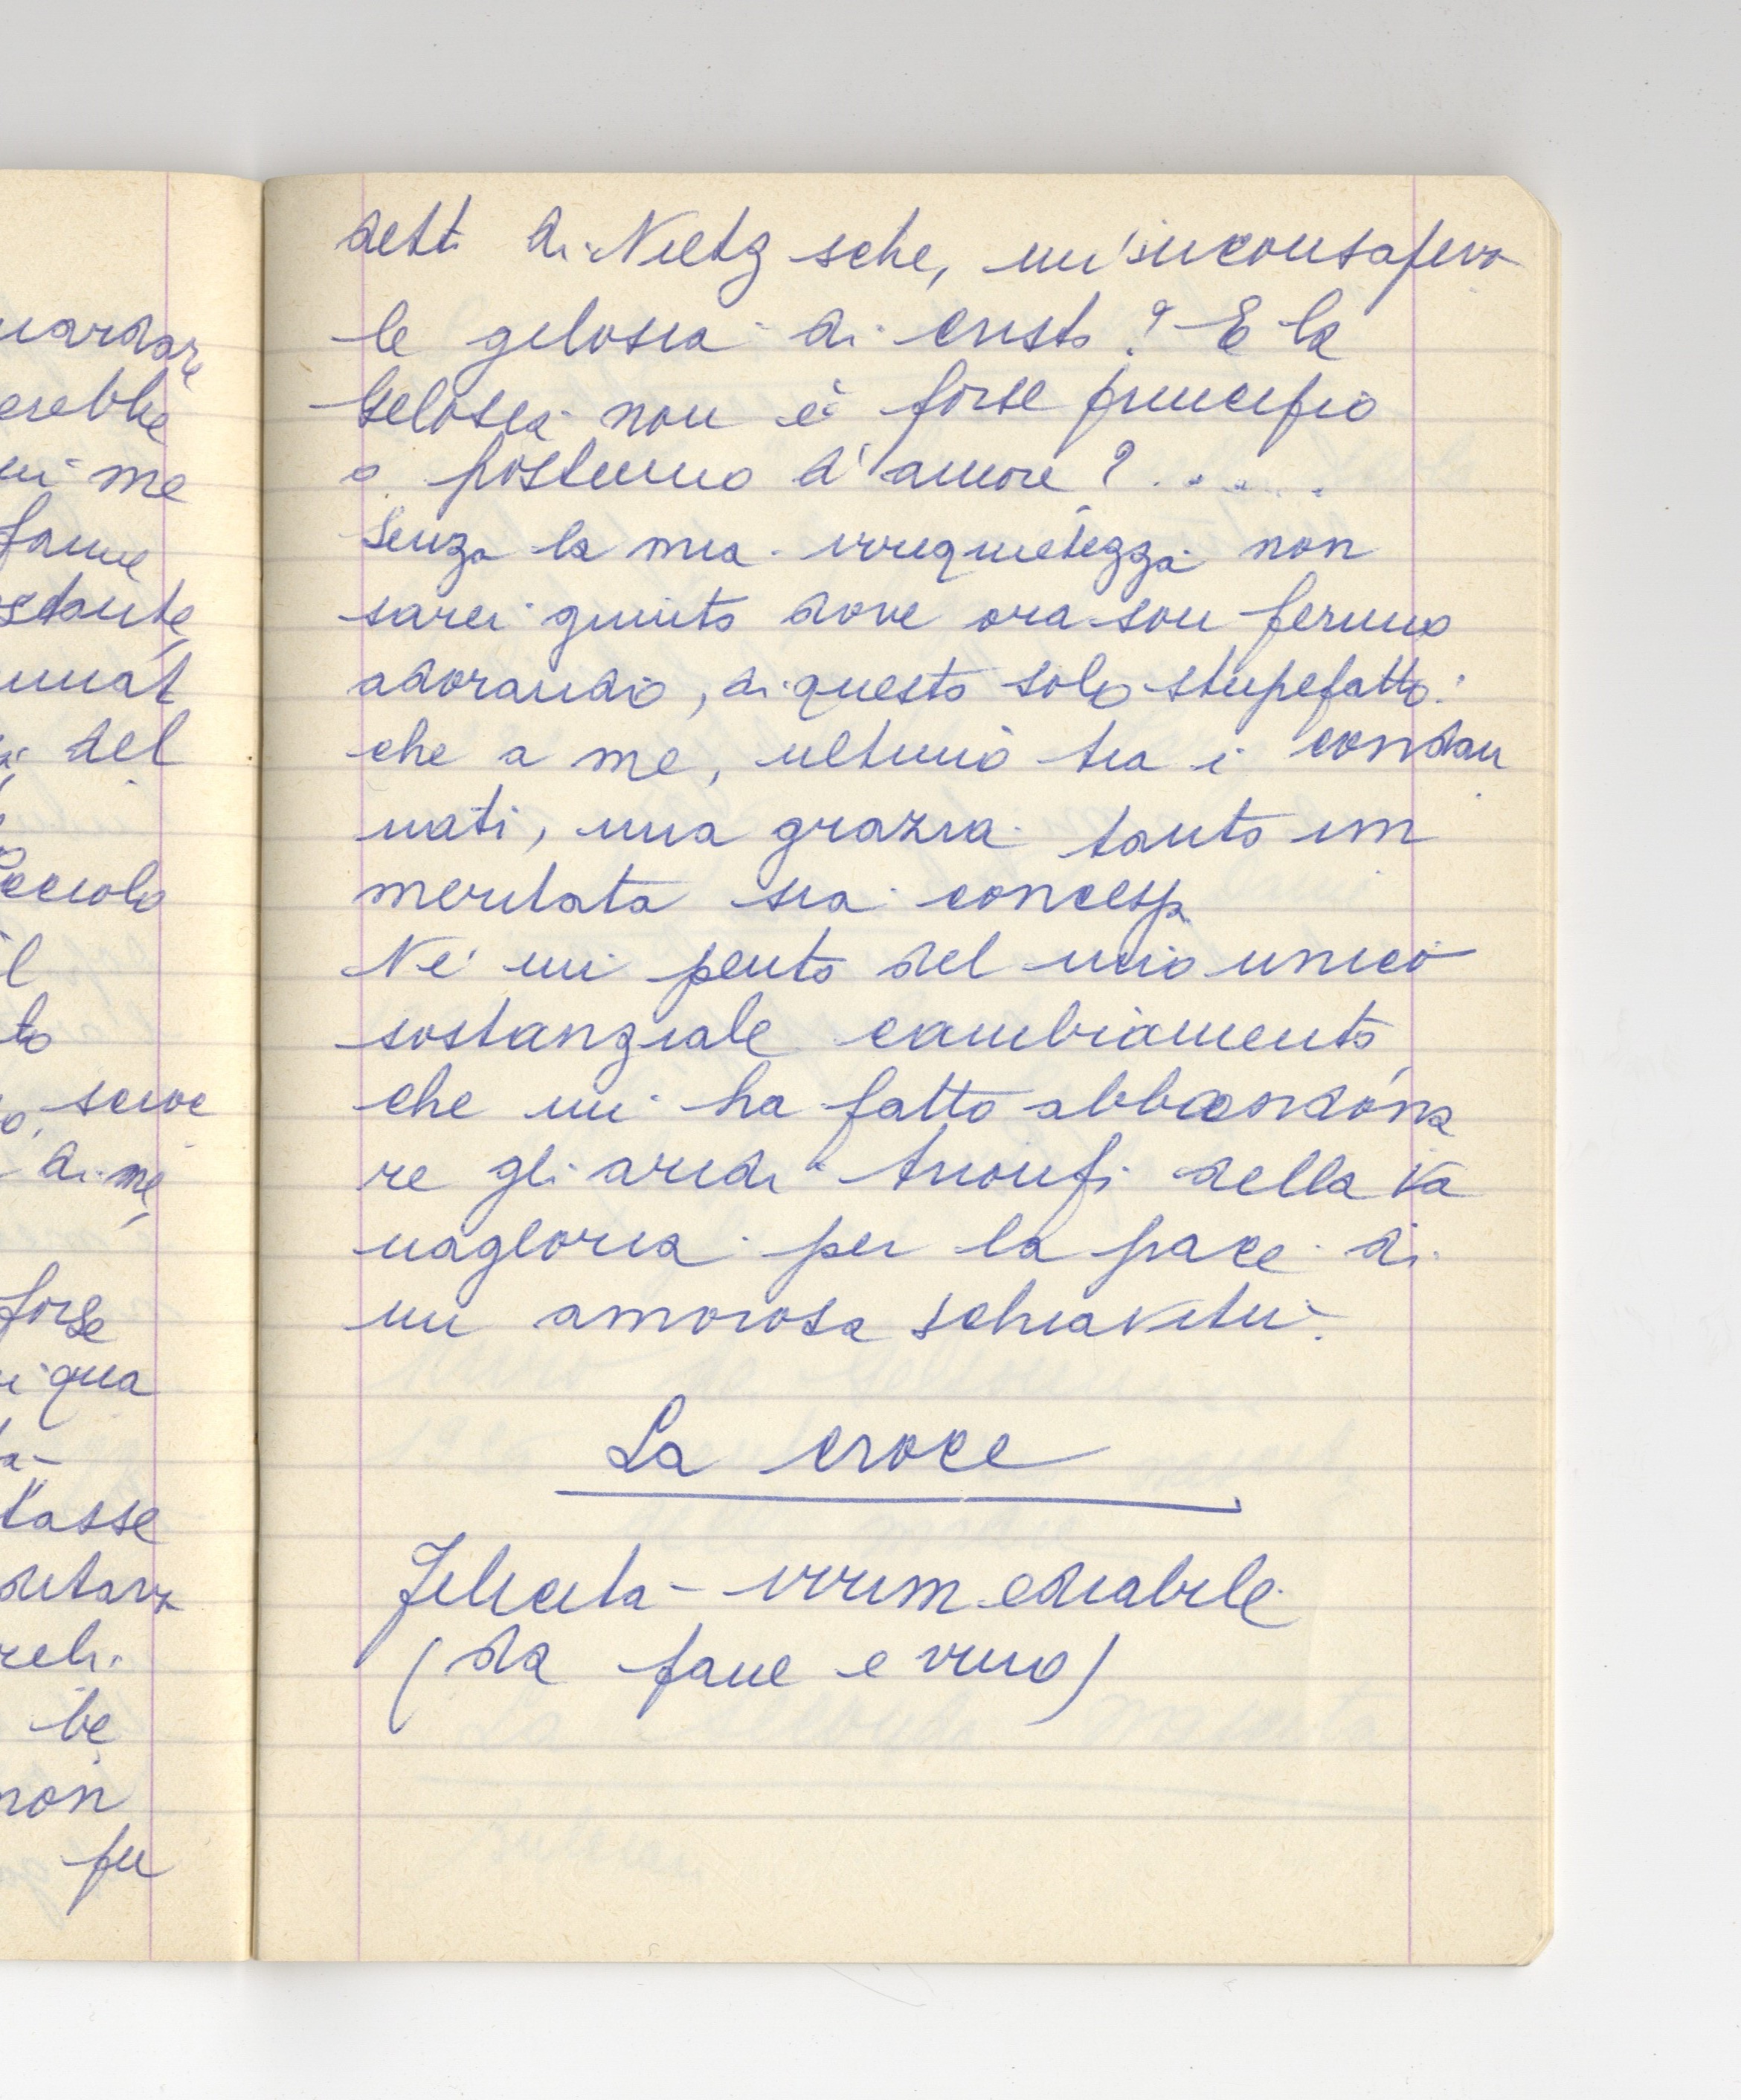 uardare
erebbe
ui me
fame
stante,
unnat
del
cciolo
il
to
o, serve
di me,
forse
qua
a-
tasse
reli.
be
non
pu
detti di Nietzsche, un'inconsapevo
le gelosia di Cristo? E la
gelosia non è forse principio
o postumo d'amore? . . . . .
Senza la mia irrequietezza non
sarei giunto dove ora son fermo
adorando, di questo solo stupefatto:
che a me, ultimo tra i condan
nati, una grazia tanto im
meritata sia concessa.
Né mi pento del mio unico
sostanziale cambiamento
che mi ha fatto abbandona
re gli aridi trionfi della va
nagloria per la pace di
un amorosa schiavitù.
La croce
Felicità irrimediabile
(da pane e vino)